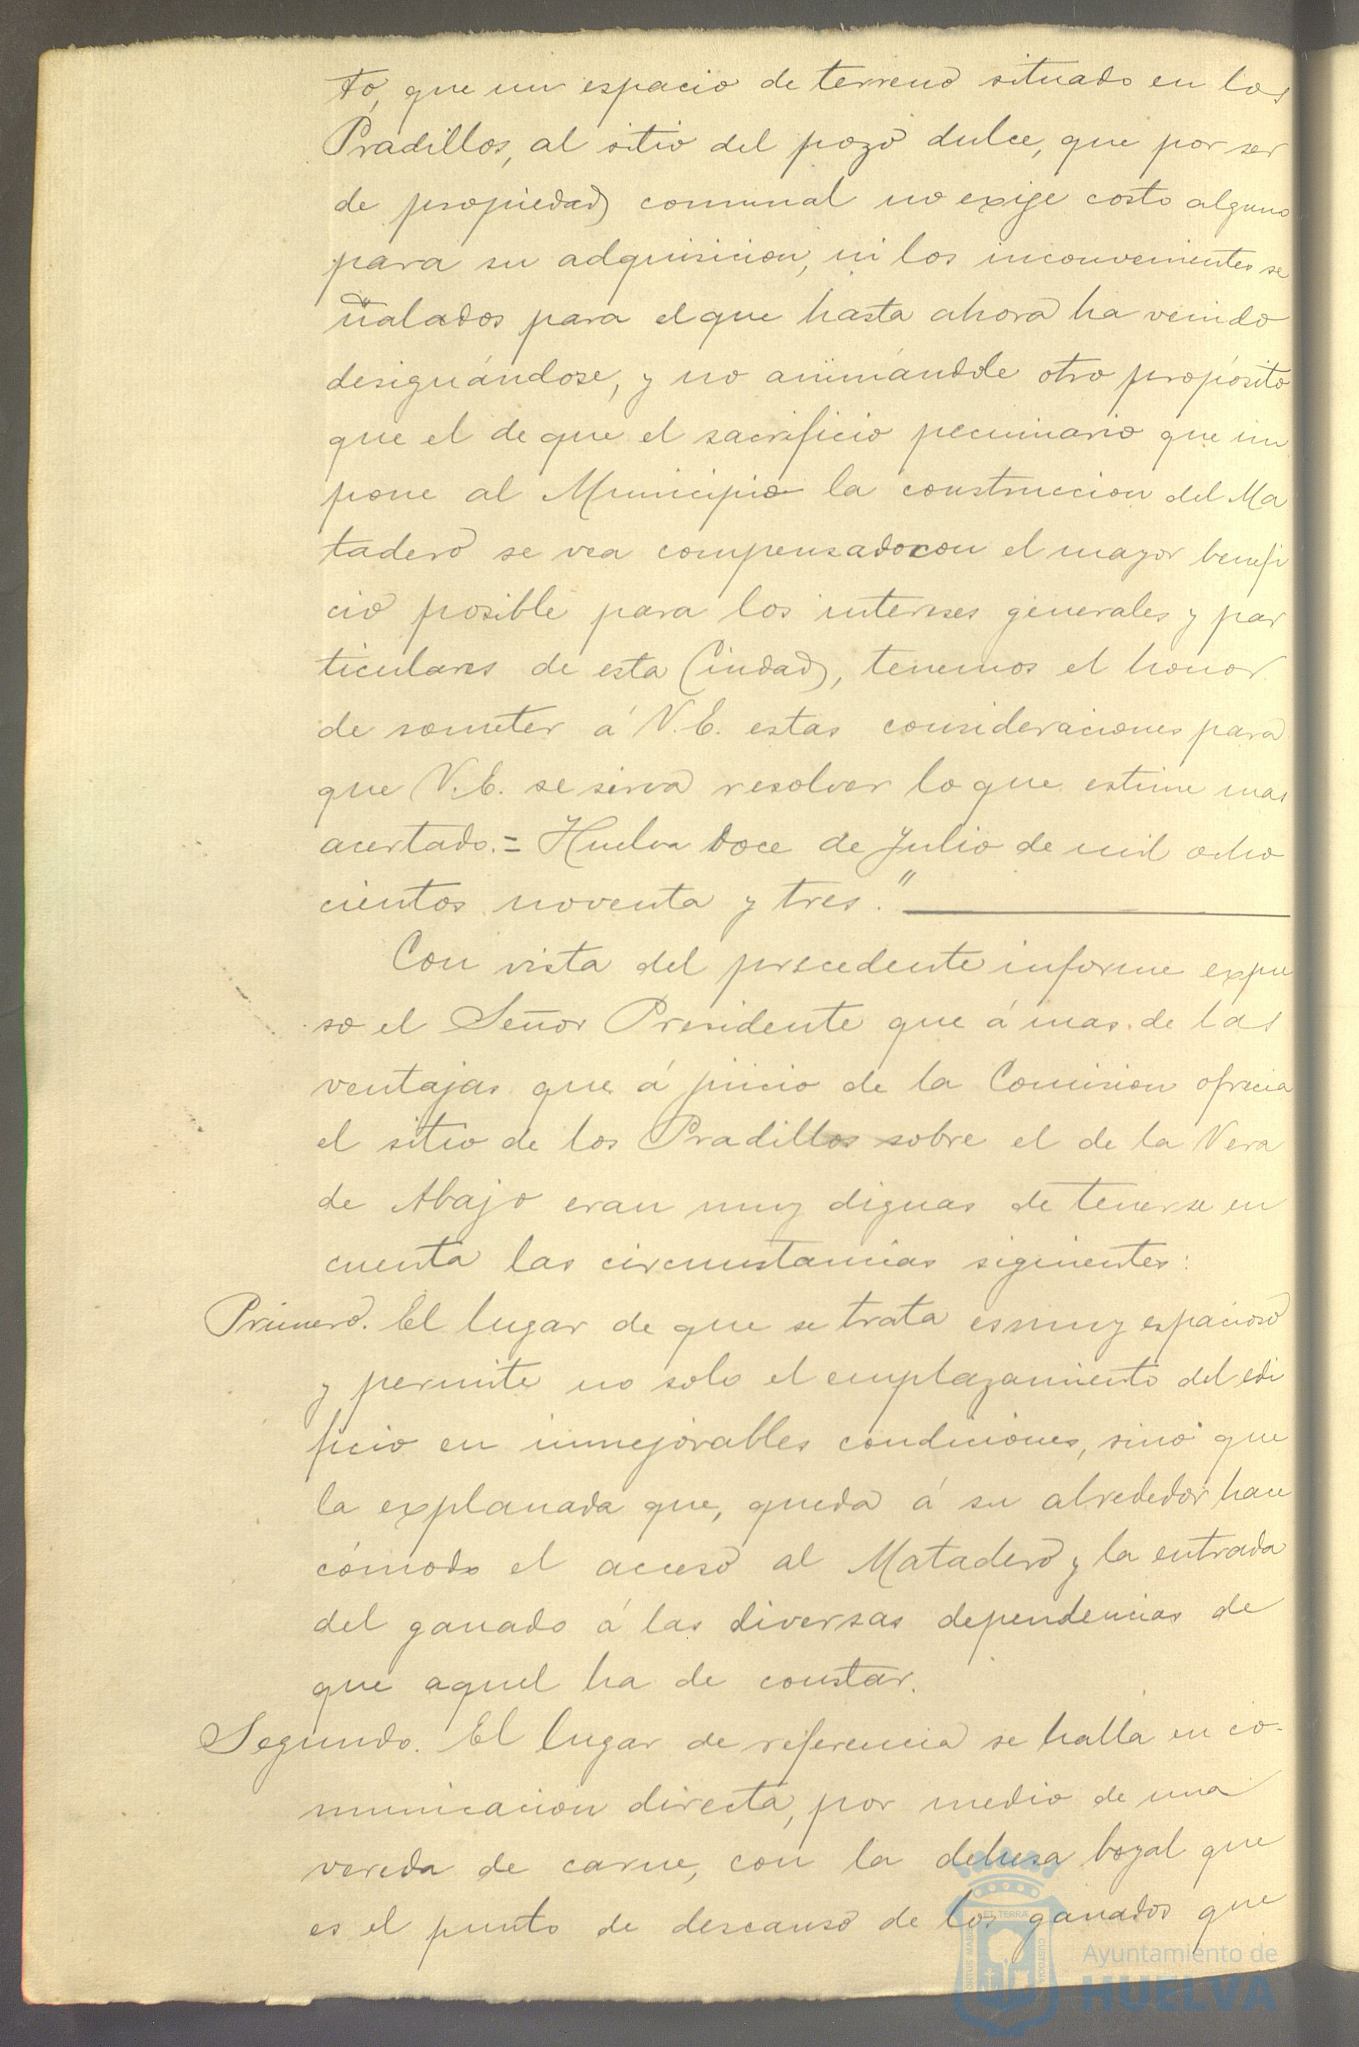 to, que un espacio de terreno situado en los
Pradillos, al sitio del pozo dulce, que por ser
de propiedad comunal no exije costo alguno
para su adquisicion, ni los inconvenientes se
ñalados para el que hasta ahora ha venido
designándose, y no animándole otro propósito
que el de que el sacrificio pecuniario que im
pone al Municipio la construccion del Ma
tadero se vea compensado con el mayor benefi
cio posible para los intereses generales y par
ticulares de esta Ciudad, tenemos el honor
de someter á V.E. estas consideraciones para
que V.E. se sirva resolver lo que estime mas
acertado.= Huelva doce de Julio de mil ocho
cientos noventa y tres."
Con vista del precedente informe expu
so el Señor Presidente que á mas de las
ventajas que á juicio de la Comision ofrecia
el sitio de los Pradillos sobre el de la Vera
de Abajo eran muy dignas de tenerse en
cuenta las circunstancias siguientes:
Primero. El lugar de que se trata es muy espacioso
y permite no solo el emplazamiento del edi
ficio en inmejorables condiciones, sinó que
la explanada que, queda á su alrededor hace
cómodo el acceso al Matadero y la entrada
del ganado á las diversas dependencias de
que aquel ha de constar.
Segundo. El lugar de referencia se halla en co-
municacion directa, por medio de una
vereda de carne, con la dehesa boyal que
es el punto de descanso de los ganados que
Ayuntamiento de
HUELVA